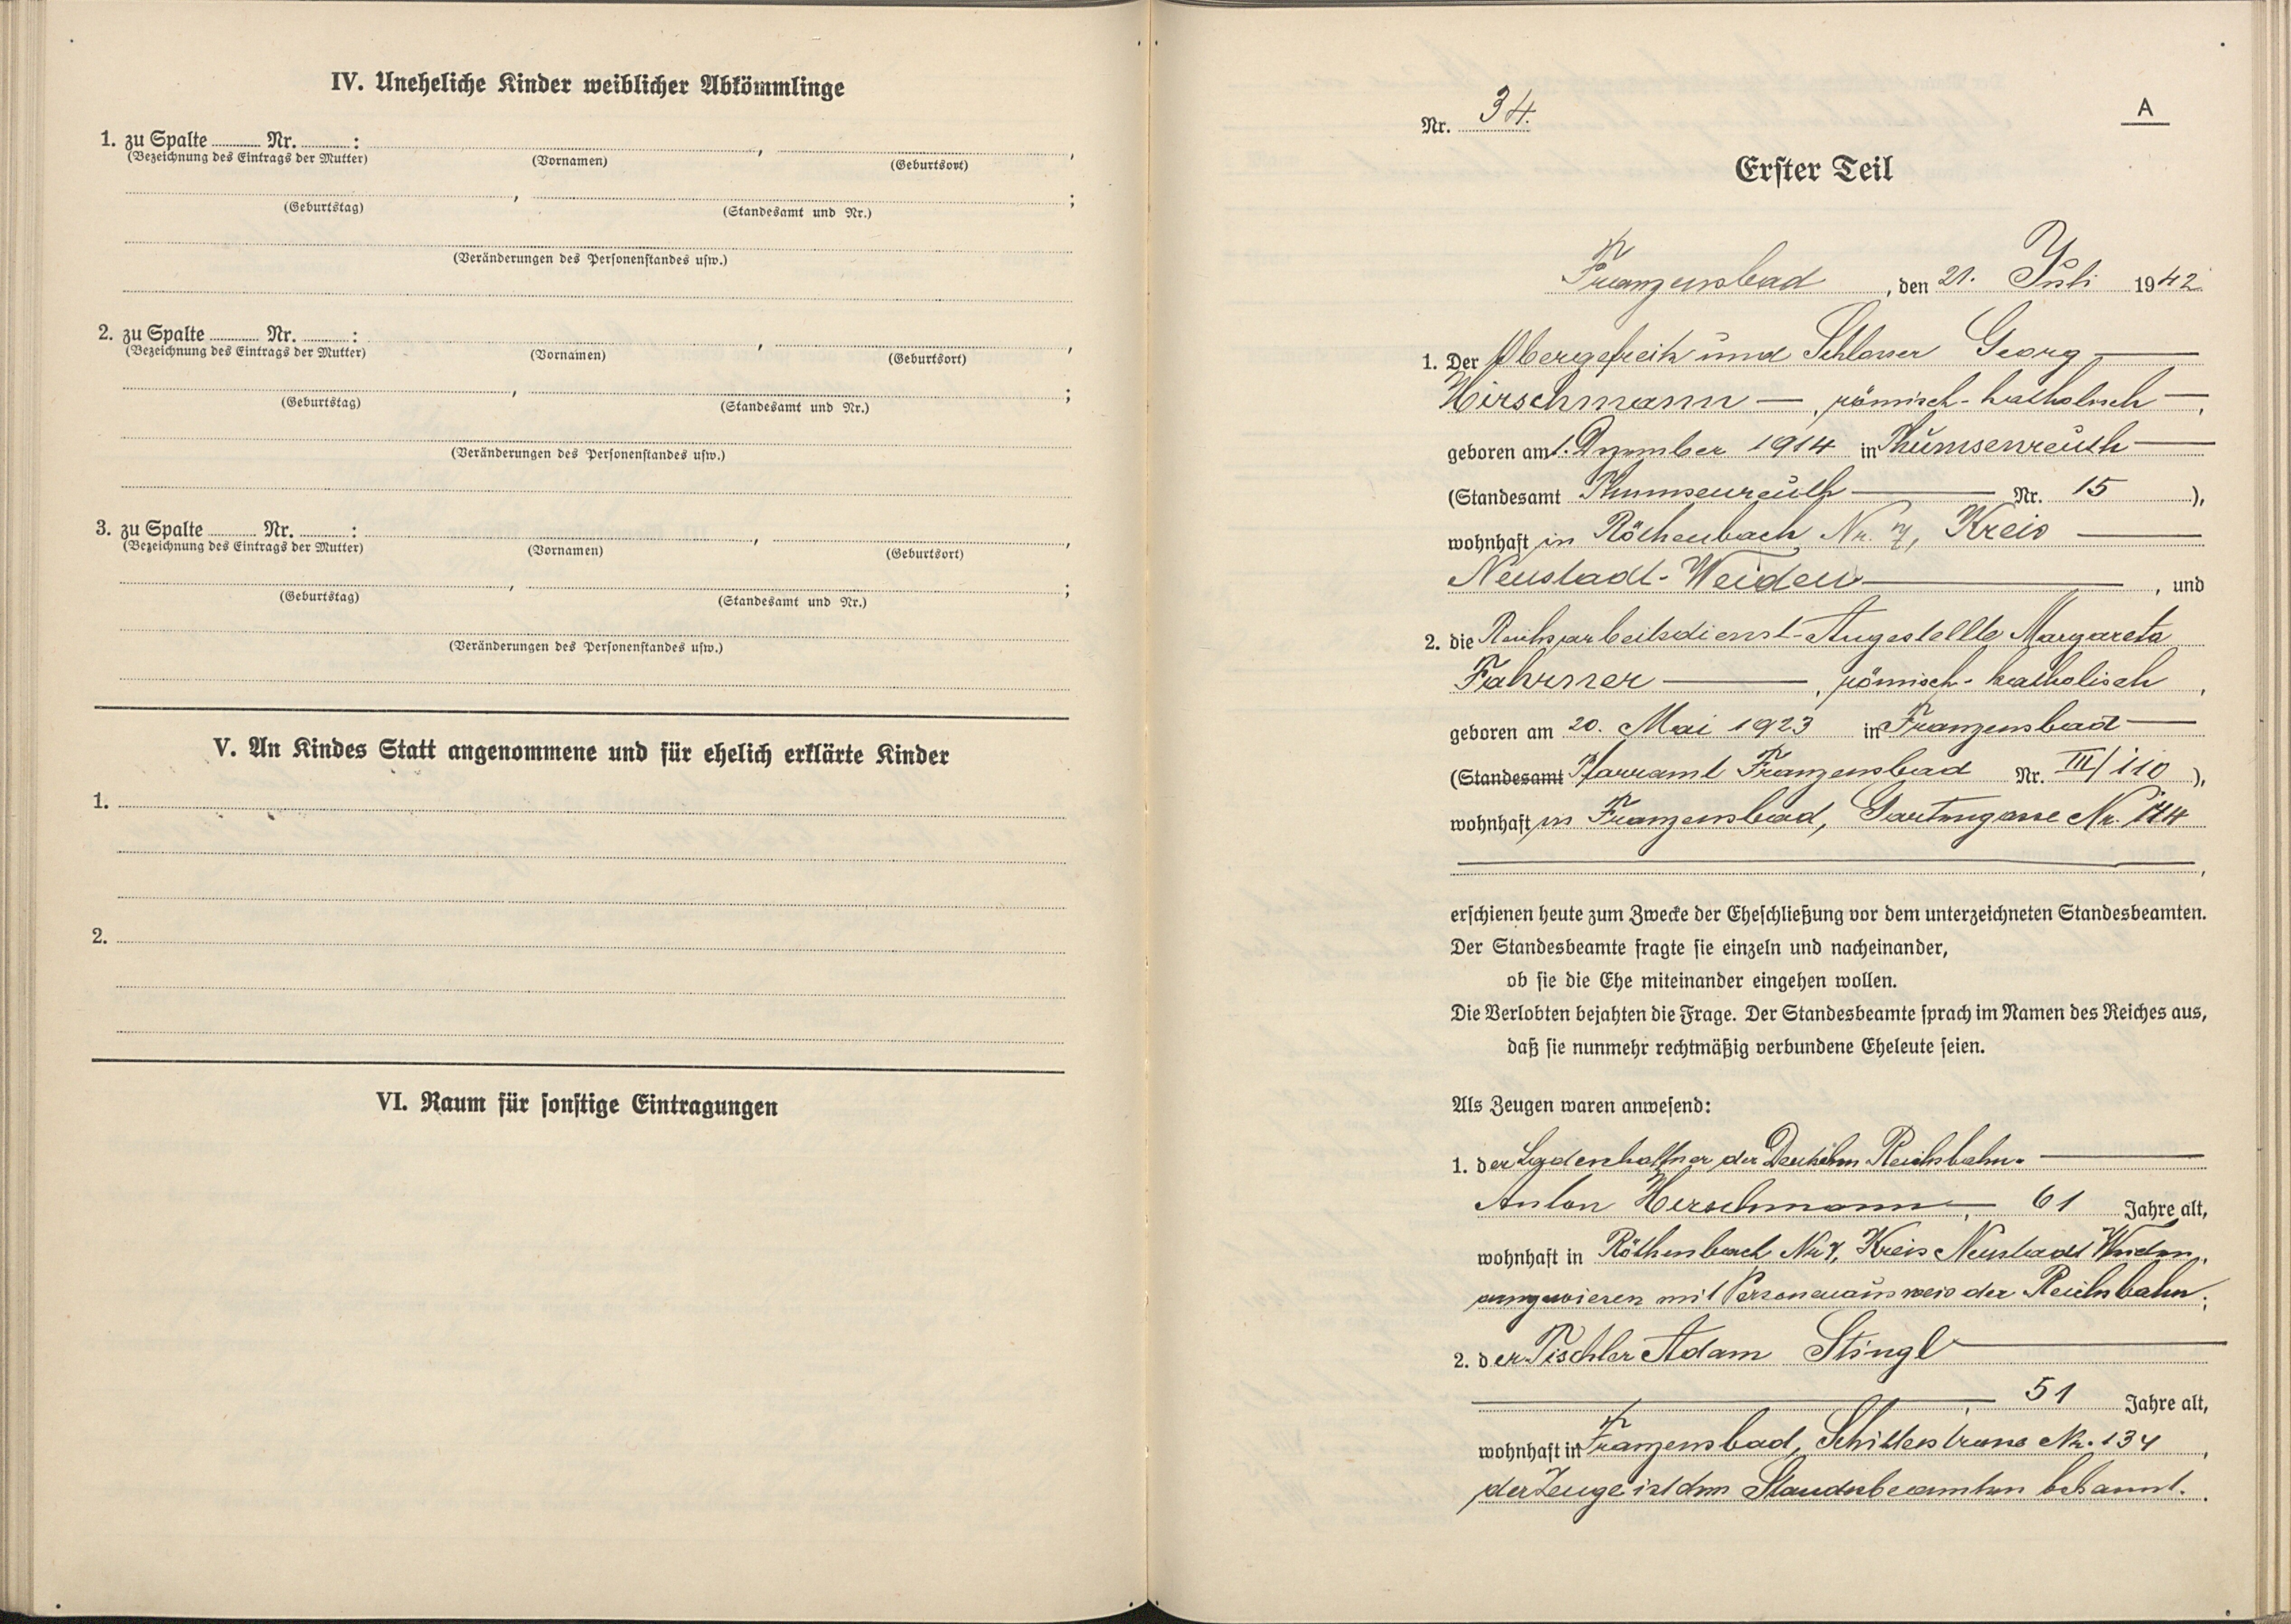 IV. Uneheliche Kinder weiblicher Abkömmlinge
1. zu Spalte ........ Nr. ........ : , ,
(Bezeichnung des Eintrags der Mutter) (Vornamen) (Geburtsort)
, ;
(Geburtstag) (Standesamt und Nr.)
(Veränderungen des Personenstandes usw.)
2. zu Spalte ........ Nr. ........ : , ,
(Bezeichnung des Eintrags der Mutter) (Vornamen) (Geburtsort)
, ;
(Geburtstag) (Standesamt und Nr.)
(Veränderungen des Personenstandes usw.)
3. zu Spalte ........ Nr. ........ : , ,
(Bezeichnung des Eintrags der Mutter) (Vornamen) (Geburtsort)
, ;
(Geburtstag) (Standesamt und Nr.)
(Veränderungen des Personenstandes usw.)
V. An Kindes Statt angenommene und für ehelich erklärte Kinder
1.
2.
VI. Raum für sonstige Eintragungen
Nr. 34.
A
Erster Teil
Franzensbad, den 21. Juli 1942.
1. Der Obergefreite und Schlosser Georg —
Hirschmann —, römisch-katholisch —,
geboren am 1. Dezember 1914 in Thumsenreuth —
(Standesamt Thumsenreuth — Nr. 15),
wohnhaft in Röthenbach Nr. 7, Kreis —
Neustadt-Weiden —, und
2. die Reichsarbeitsdienst-Angestellte Margareta
Fahrner —, römisch-katholisch,
geboren am 20. Mai 1923 in Franzensbad —
(Standesamt Pfarramt Franzensbad Nr. III/110),
wohnhaft in Franzensbad, Gartengasse Nr.
—,
erschienen heute zum Zwecke der Eheschließung vor dem unterzeichneten Standesbeamten.
Der Standesbeamte fragte sie einzeln und nacheinander,
ob sie die Ehe miteinander eingehen wollen.
Die Verlobten bejahten die Frage. Der Standesbeamte sprach im Namen des Reiches aus,
daß sie nunmehr rechtmäßig verbundene Eheleute seien.
Als Zeugen waren anwesend:
1. der Ladeschaffner der Deutschen Reichsbahn. —
Anton Hirschmann —, 61 Jahre alt,
wohnhaft in Röthenbach Nr. 7, Kreis Neustadt Weiden,
ausgewiesen mit Personenausweis der Reichsbahn;
2. der Tischler Adam Stingl —
—, 51 Jahre alt,
wohnhaft in Franzensbad, Schillerstrasse Nr. 134,
der Zeuge ist dem Standesbeamten bekannt.